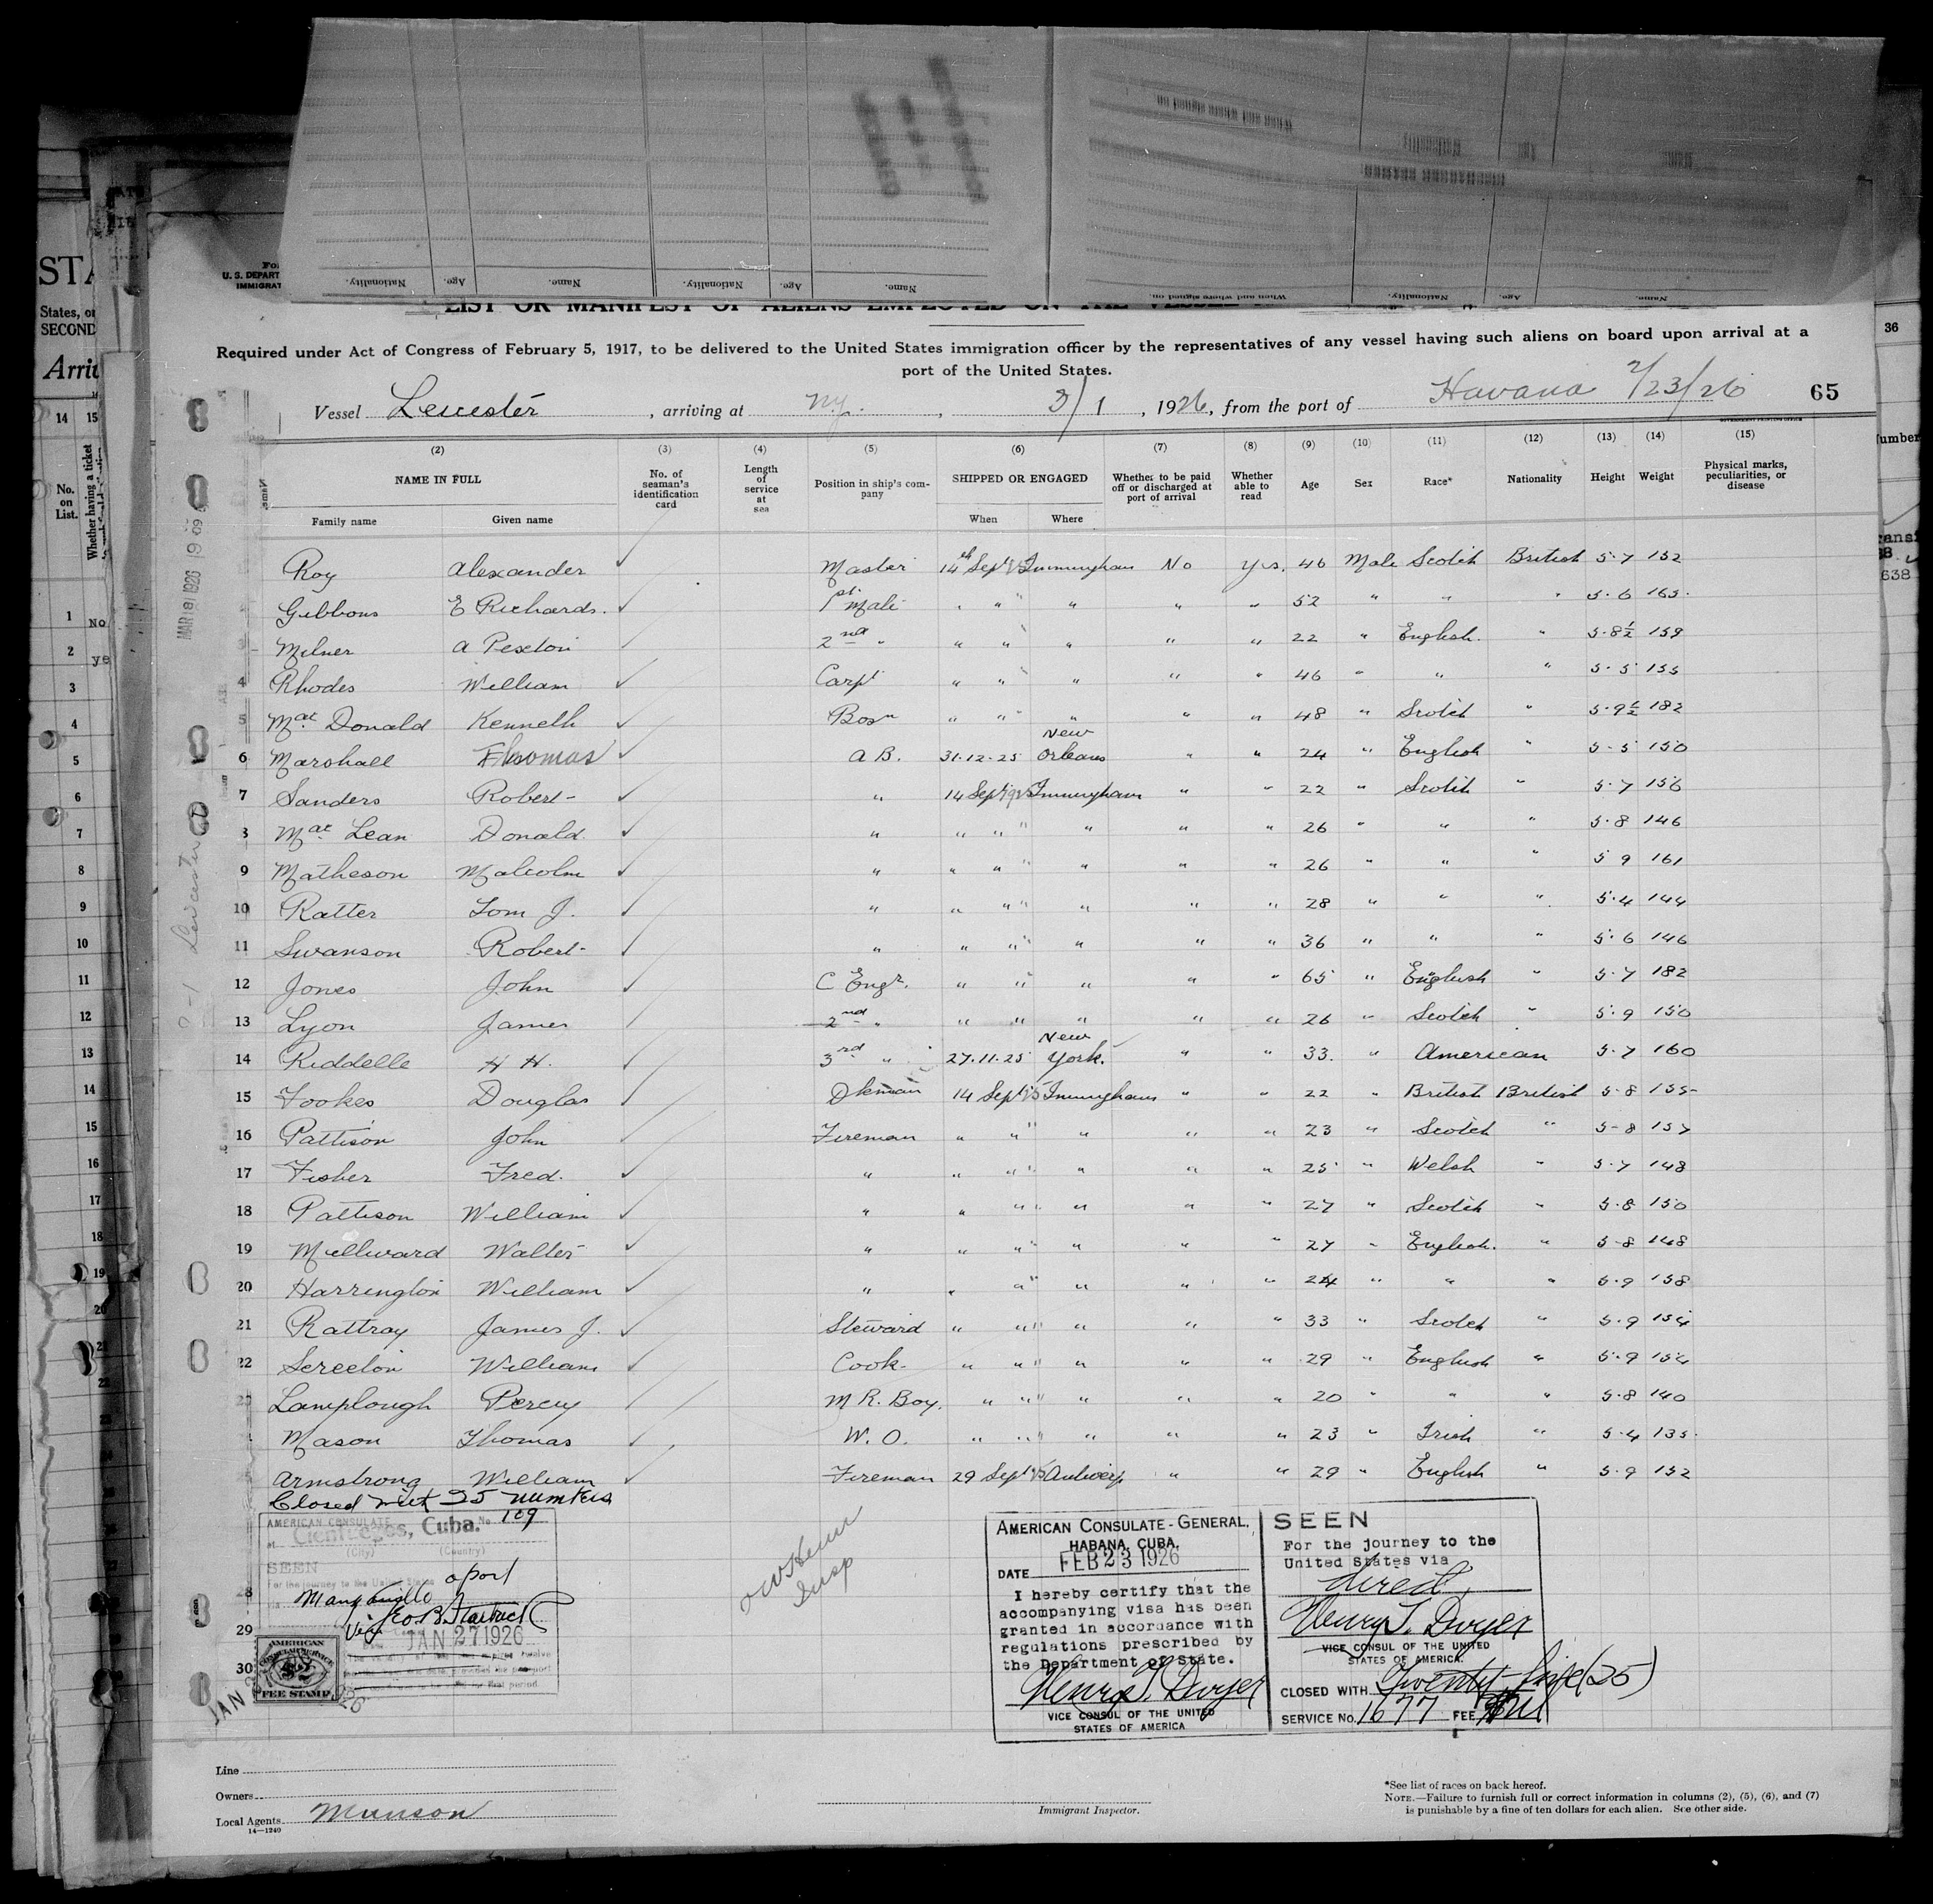 STA
States, or
SECOND
Arri
U. S. DEPART
IMMIGRAT
Nationality. Age. Name. Nationality. Age. Name. When and where signed on. Nationality. Age. Name.
LIST OR MANIFEST OF ALIENS EMPLOYED ON THE VESSEL
Required under Act of Congress of February 5, 1917, to be delivered to the United States immigration officer by the representatives of any vessel having such aliens on board upon arrival at a
port of the United States.
Vessel Leicester, arriving at N.Y., 3/1, 1926, from the port of Havana 2/23/26 65
(2) (3) (4) (5) (6) (7) (8) (9) (10) (11) (12) (13) (14) (15)
NAME IN FULL No. of seaman's identification card Length of service at sea Position in ship's company SHIPPED OR ENGAGED Whether to be paid off or discharged at port of arrival Whether able to read Age Sex Race* Nationality Height Weight Physical marks, peculiarities, or disease
Family name Given name When Where
Roy Alexander ✓ Master 14th Sept 25 Immingham No Yes. 46 Male Scotch British 5·7 152
Gibbons E Richards. ✓ 1st Mate " " " " " " 52 " " " 5·6 165.
3 Milner A Pexton ✓ 2nd " " " " " " 22 " English. " 5·8½ 159
4 Rhodes William ✓ Carpt " " " " " " 46 " " " 5·5 155
5 Mac Donald Kenneth ✓ Bosn " " " " " " 48 " Scotch " 5·9½ 182
6 Marshall Thomas ✓ A B. 31·12·25 New Orleans " " 24 " English " 5·5 150
7 Sanders Robert ✓ " 14 Sept 1925 Immingham " " 22 " Scotch " 5·7 156
8 Mac Lean Donald. ✓ " " " " " " " 26 " " " 5·8 146
9 Matheson Malcolm ✓ " " " " " " " 26 " " " 5 9 161
10 Ratter Tom J. ✓ " " " " " " " 28 " " " 5·4 144
11 Swanson Robert ✓ " " " " " " " 36 " " " 5·6 146
12 Jones John ✓ C Engr. " " " " " " 65 " English " 5·7 182
13 Lyon James ✓ 2nd " " " " " " 26 " Scotch " 5·9 150
14 Riddelle H H. 3rd " 27·11·25 New York. " " 33. " American 5·7 160
15 Fookes Douglas ✓ Dkman 14 Sept 25 Immingham " " 22 " British British 5·8 155
16 Pattison John ✓ Fireman " " " " " " 23 " Scotch " 5-8 157
17 Fisher Fred. ✓ " " " " " " " 25 " Welsh " 5·7 148
18 Pattison William ✓ " " " " " " " 27 " Scotch " 5·8 150
19 Millward Walter ✓ " " " " " " " 27 " English. " 5-8 148
20 Harrington William ✓ " " " " " " " 24 " " " 5·9 158
21 Rattray James J. ✓ Steward " " " " " " 33 " Scotch " 5·9 154
22 William ✓ Cook " " " " " " 29 " English " 5·9 154
Lamplough Percy ✓ M R. Boy. " " " " " " 20 " " " 5·8 140
Mason Thomas ✓ W. O. " " " " " " 23 " Irish " 5·4 135.
Armstrong William ✓ Fireman 29 Sept 25 Antwerp " " 29 " English " 5·9 152
Closed with 25 numbers
AMERICAN CONSULATE No 109
at Cienfuegos, Cuba.
(City) (Country)
SEEN
For the journey to the United States
via Manzanillo a port
Geo. B. Starbuck
JAN 27 1926
28
29
30
AMERICAN
CONSULAR SERVICE
$2
FEE STAMP
Insp
AMERICAN CONSULATE-GENERAL,
HABANA, CUBA.
DATE FEB 23 1926
I hereby certify that the
accompanying visa has been
granted in accordance with
regulations prescribed by
the Department of State.
Henry T. Dwyer
VICE CONSUL OF THE UNITED
STATES OF AMERICA
SEEN
For the journey to the
United States via
direct
Henry T. Dwyer
VICE CONSUL OF THE UNITED
STATES OF AMERICA.
CLOSED WITH Twenty five (25)
SERVICE No. 1677 FEE
Line
Owners
Local Agents Munson
14—1240
Immigrant Inspector.
*See list of races on back hereof.
NOTE.—Failure to furnish full or correct information in columns (2), (5), (6), and (7)
is punishable by a fine of ten dollars for each alien. See other side.
MAR 8 1926